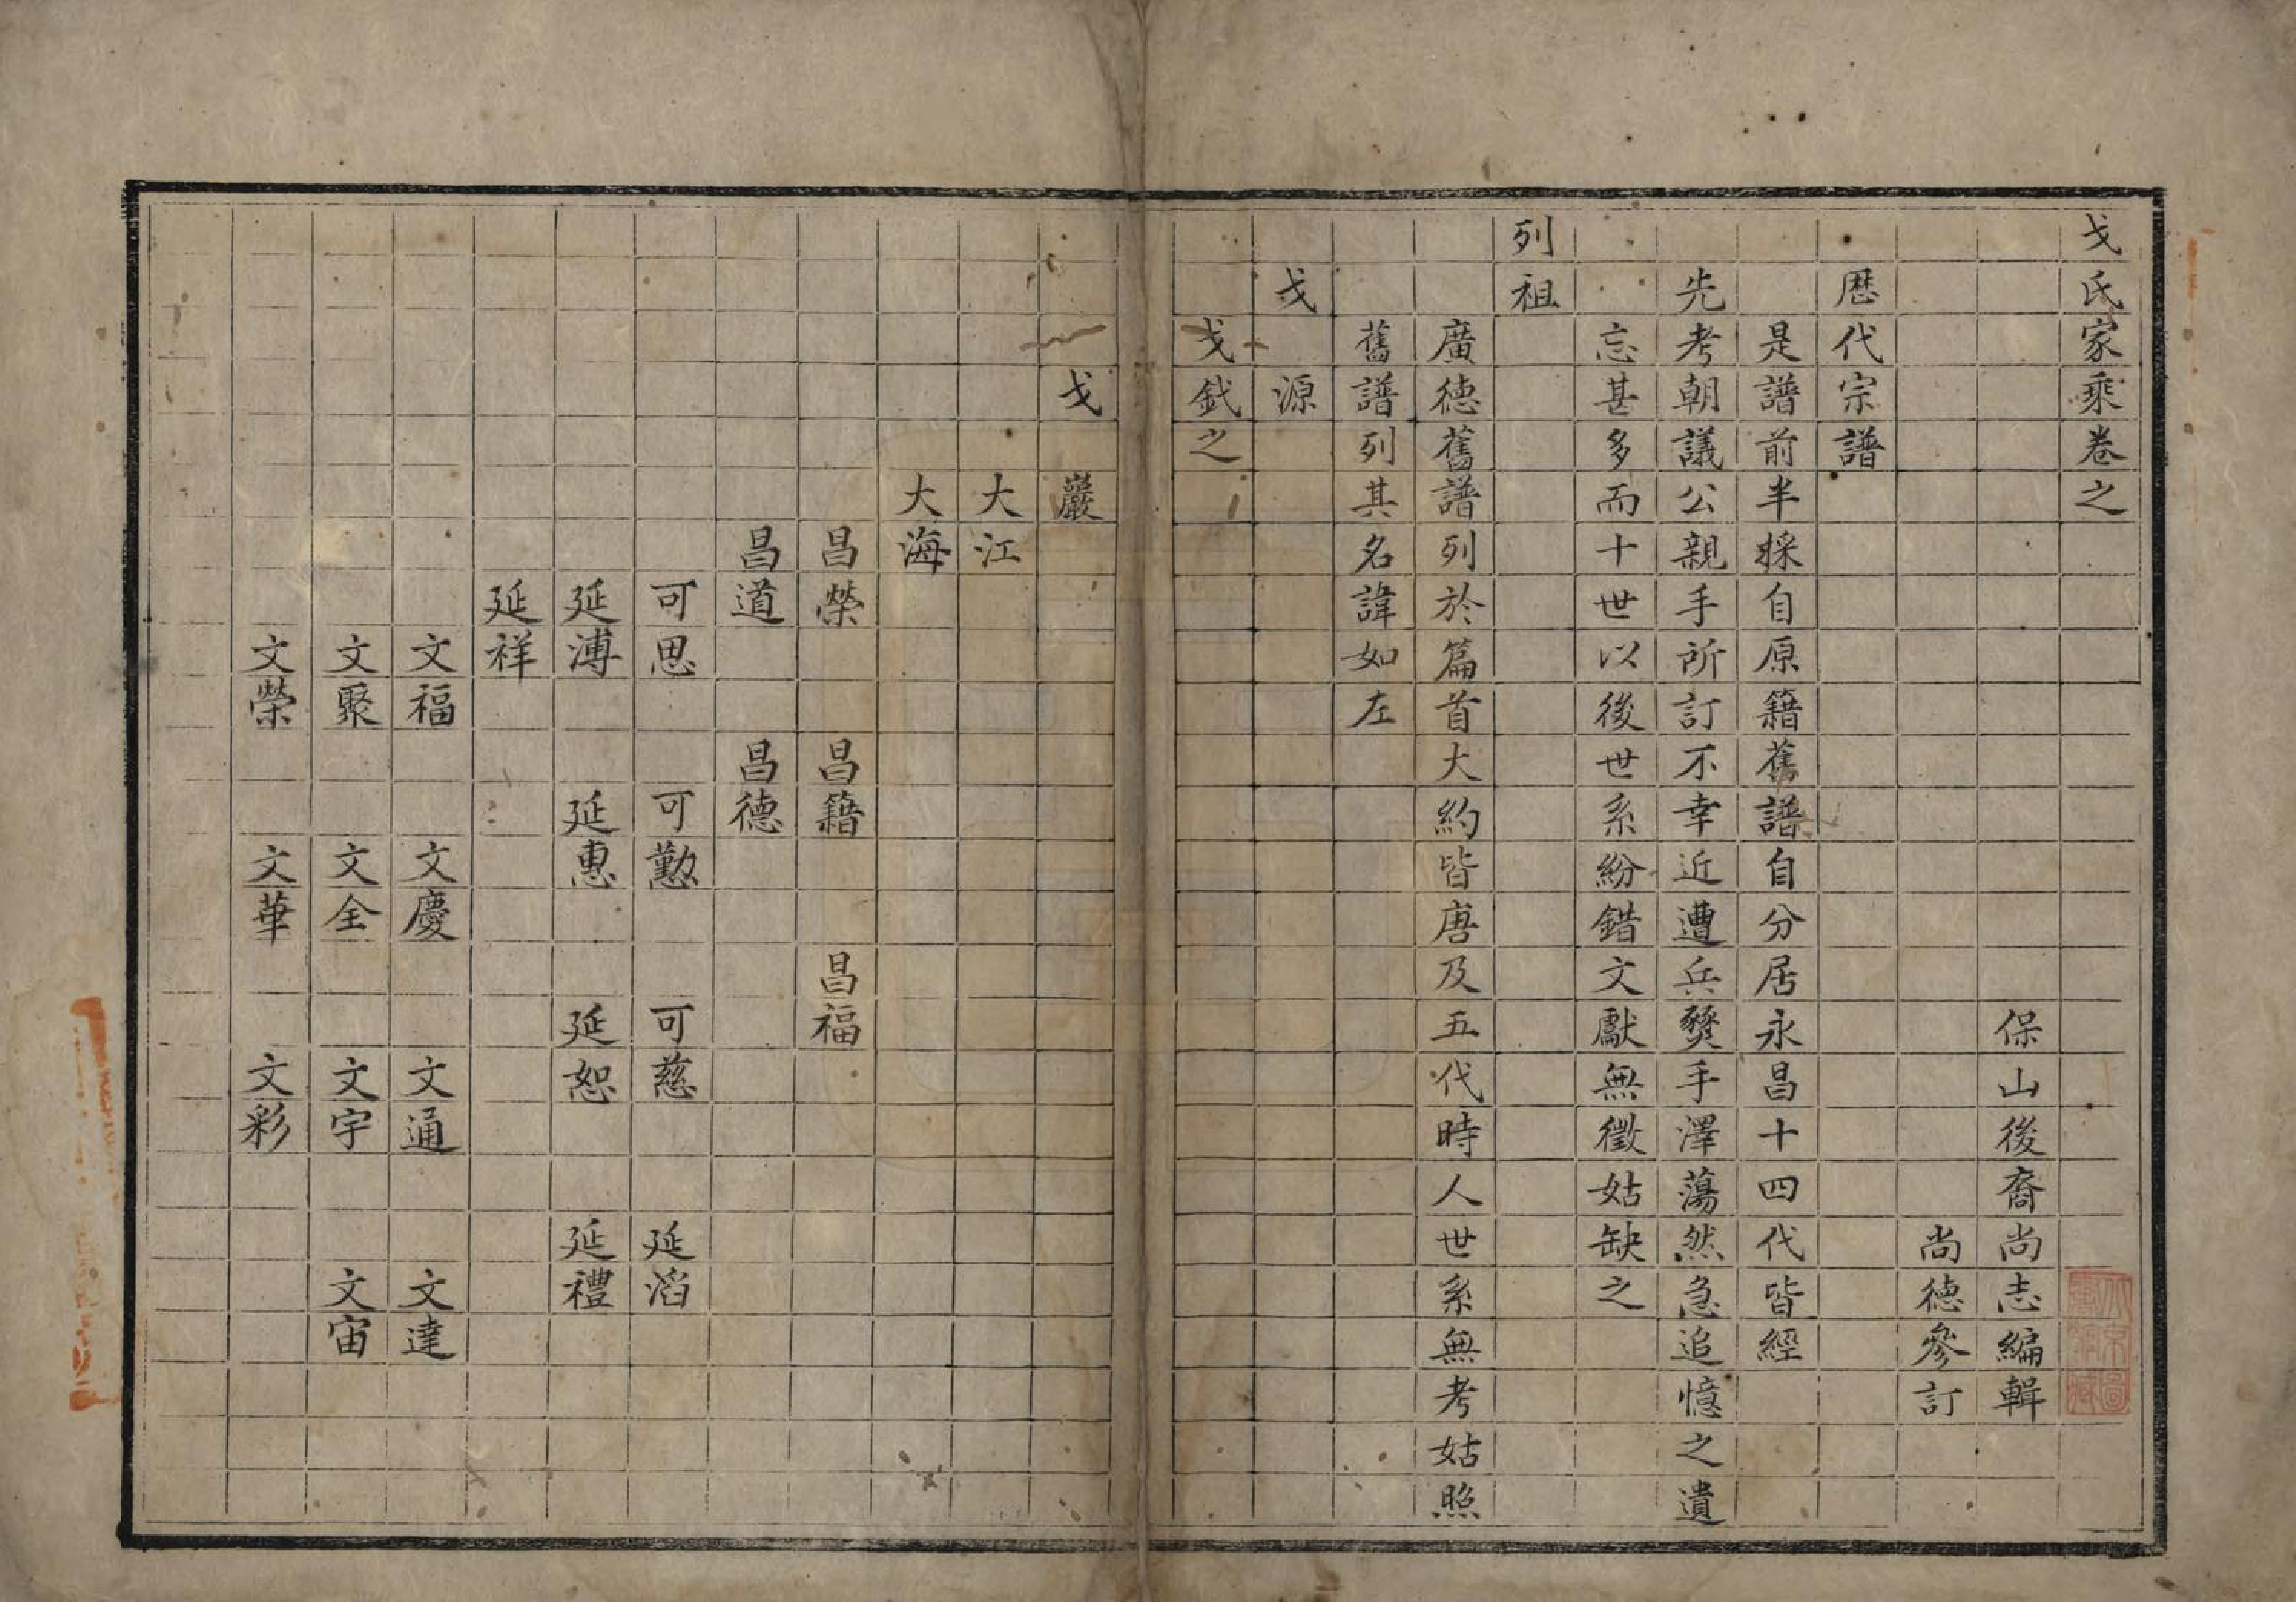 戈氏家乘卷之
保山後裔尚志編輯
尚德參訂
歷代宗譜
是譜前半採自原籍舊譜自分居永昌十四代皆經
先考朝議公親手所訂不幸近遭兵燹手澤蕩然急追憶之遺
忘甚多而十世以後世系紛錯文獻無徵姑缺之
列祖
廣德舊譜列於篇首大約皆唐及五代時人世系無考姑照
舊譜列其名諱如左
戈源
戈鉞之
戈巖
大江
大海
昌榮 昌籍 昌福
昌道 昌德
可思 可勤 可慈 延滔
延溥 延惠 延恕 延禮
延祥
文福 文慶 文通 文達
文聚 文全 文宇 文宙
文榮 文華 文彩